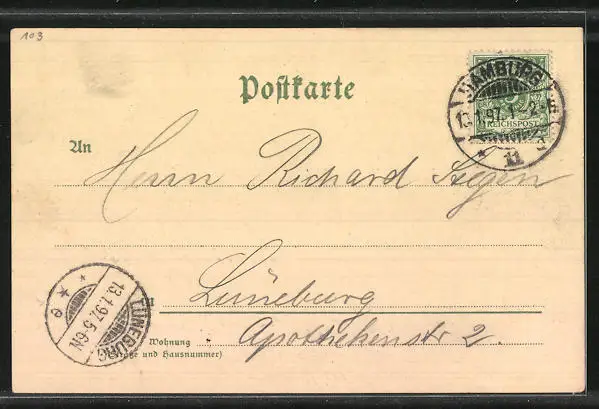 103
Postkarte
HAMBURG
13.1.97.1-2N.
11
REICHSPOST
An
Herrn Richard
Lüneburg
LÜNEBURG
13.1.97.5-6N.
Wohnung
Apothekenstr 2.
(Straße und Hausnummer)